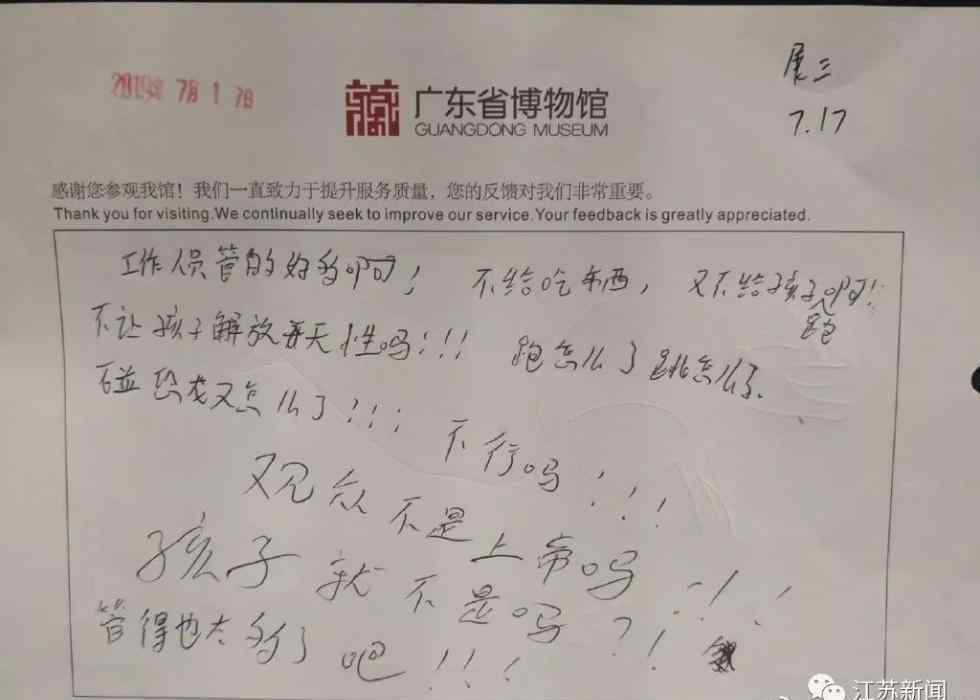 2019年 7月 17日
展三
7.17
广东省博物馆
GUANGDONG MUSEUM
感谢您参观我馆！我们一直致力于提升服务质量，您的反馈对我们非常重要。
Thank you for visiting.We continually seek to improve our service.Your feedback is greatly appreciated.
工作人员管的好多啊！ 不给吃东西， 又不给孩子跑啊！
不让孩子解放天性吗！！！ 跑怎么了跳怎么了.
碰恐龙又怎么了！！！ 不行吗！！！
观众不是上帝吗！！！
孩子就不是吗？！
管得也太多了吧！！！
江苏新闻